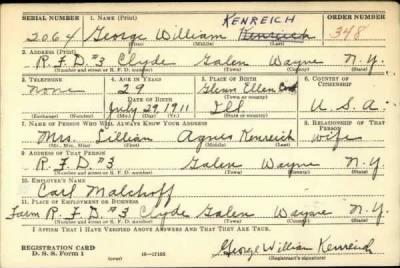 SERIAL NUMBER 1. NAME (Print) KENREICH ORDER NUMBER
2064 George William Kenreich 348
(First) (Middle) (Last)
2. ADDRESS (Print)
R.F.D. #3 Clyde Galen Wayne N.Y.
(Number and street or R. F. D. number) (Town) (County) (State)
3. TELEPHONE 4. AGE IN YEARS 5. PLACE OF BIRTH 6. COUNTRY OF CITIZENSHIP
None 29 Glenn Ellen
DATE OF BIRTH (Town or county)
July 29, 1911 Ill. U.S.A.
(Exchange) (Number) (Mo.) (Day) (Yr.) (State or country)
7. NAME OF PERSON WHO WILL ALWAYS KNOW YOUR ADDRESS 8. RELATIONSHIP OF THAT PERSON
Mrs. Lillian Agnes Kenreich wife
(Mr., Mrs., Miss) (First) (Middle) (Last)
9. ADDRESS OF THAT PERSON
R.F.D. #3 Galen Wayne N.Y.
(Number and street or R. F. D. number) (Town) (County) (State)
10. EMPLOYER'S NAME
Carl Malchoff
11. PLACE OF EMPLOYMENT OR BUSINESS
Farm R.F.D. #3 Clyde Galen Wayne N.Y.
(Number and street or R. F. D. number) (Town) (County) (State)
I AFFIRM THAT I HAVE VERIFIED ABOVE ANSWERS AND THAT THEY ARE TRUE.
REGISTRATION CARD George William Kenreich
D. S. S. FORM 1 (over) 16—17105 (Registrant's signature)